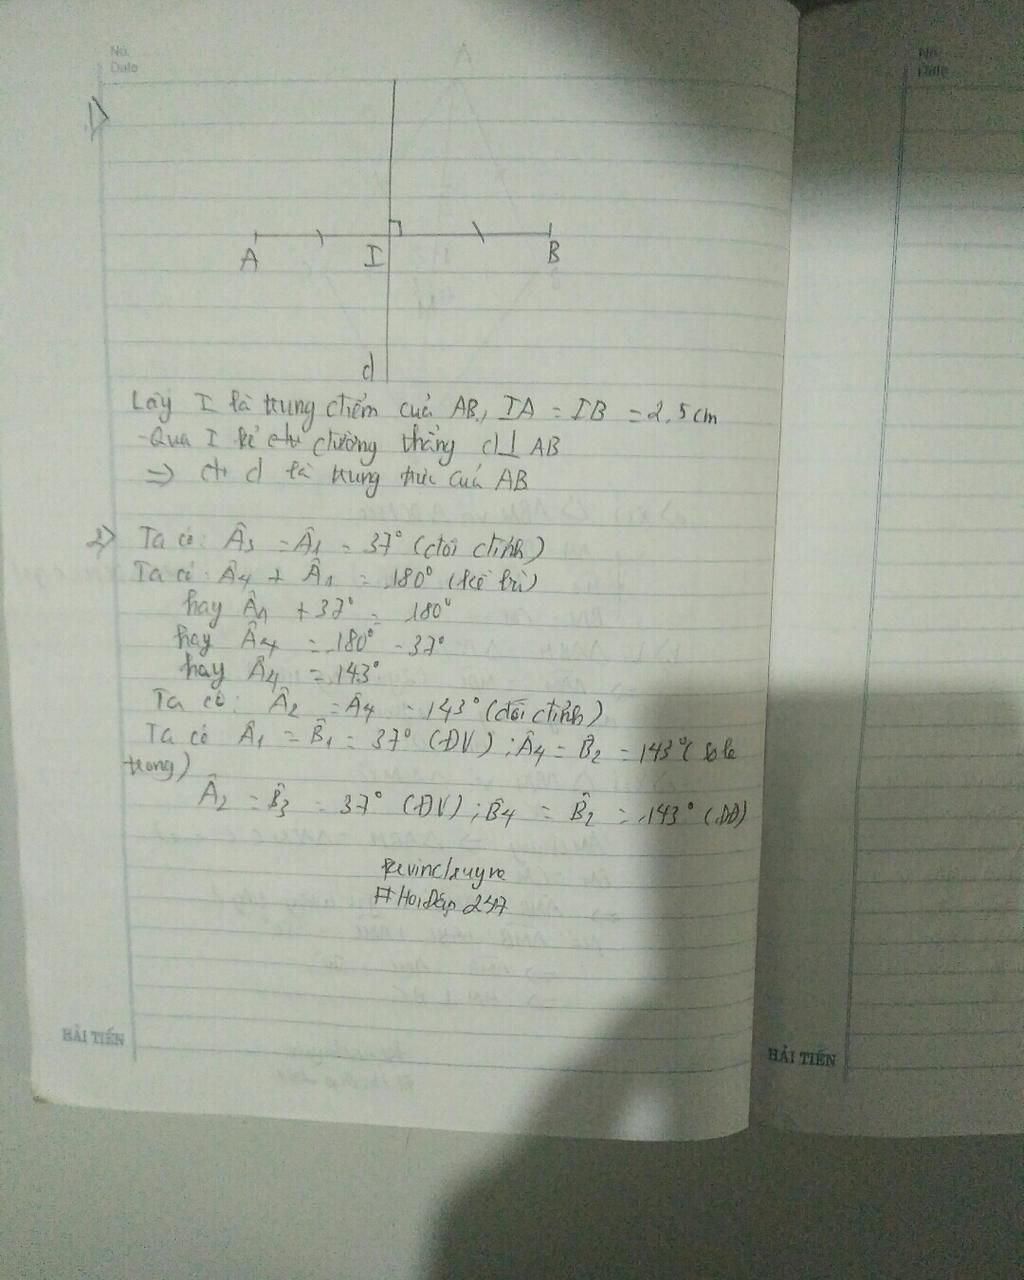 No.
Date
No.
Date
1)
A I B
d
Lấy I là trung điểm của AB, IA = IB = 2,5 cm
-Qua I kẻ đường thẳng d ⊥ AB
=> đt d là trung trực của AB
2) Ta có: Â3 = Â1 = 37° (đối đỉnh)
Ta có: Â4 + Â1 = 180° (kề bù)
hay Â4 + 37° = 180°
hay Â4 = 180° - 37°
hay Â4 = 143°
Ta có: Â2 = Â4 = 143° (đối đỉnh)
Ta có Â1 = B̂1 = 37° (ĐV) ; Â4 = B̂2 = 143° (so le
trong)
Â2 = B̂3 = 37° (ĐV) ; B̂4 = B̂2 = 143° (ĐĐ)
#HoiDap247
HẢI TIẾN
HẢI TIẾN